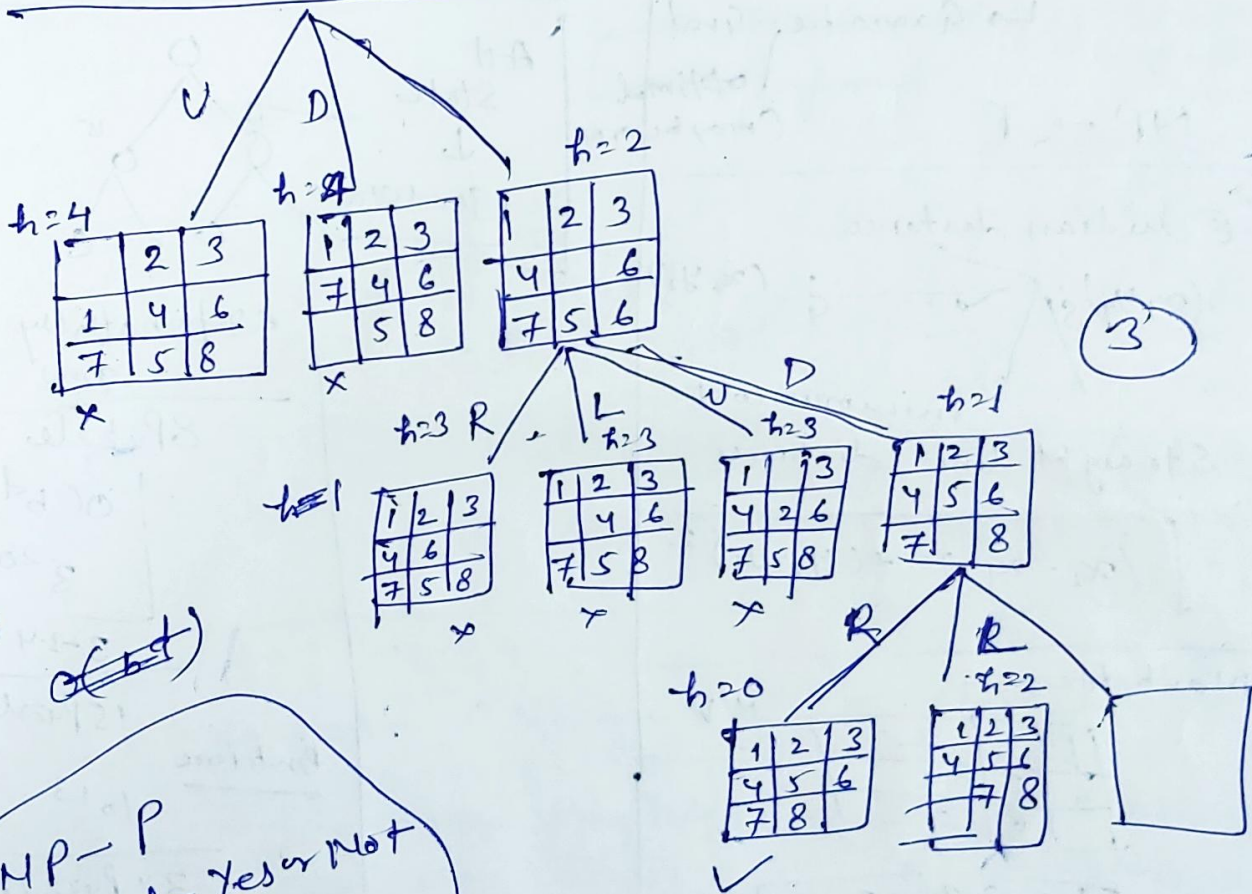 U D
h=2
h=4 h=4
2 3
1 4 6
7 5 8
x
1 2 3
7 4 6
5 8
x
1 2 3
4 6
7 5 6
3
h=3 R L U D
h=3 h=3 h=1
h=1
1 2 3
4 6
7 5 8
x
1 2 3
4 6
7 5 8
x
1 3
4 2 6
7 5 8
x
1 2 3
4 5 6
7 8
R R
h=0 h=2
1 2 3
4 5 6
7 8
✓
1 2 3
4 5 6
7 8
O(bd)
NP-P
Yes or Not